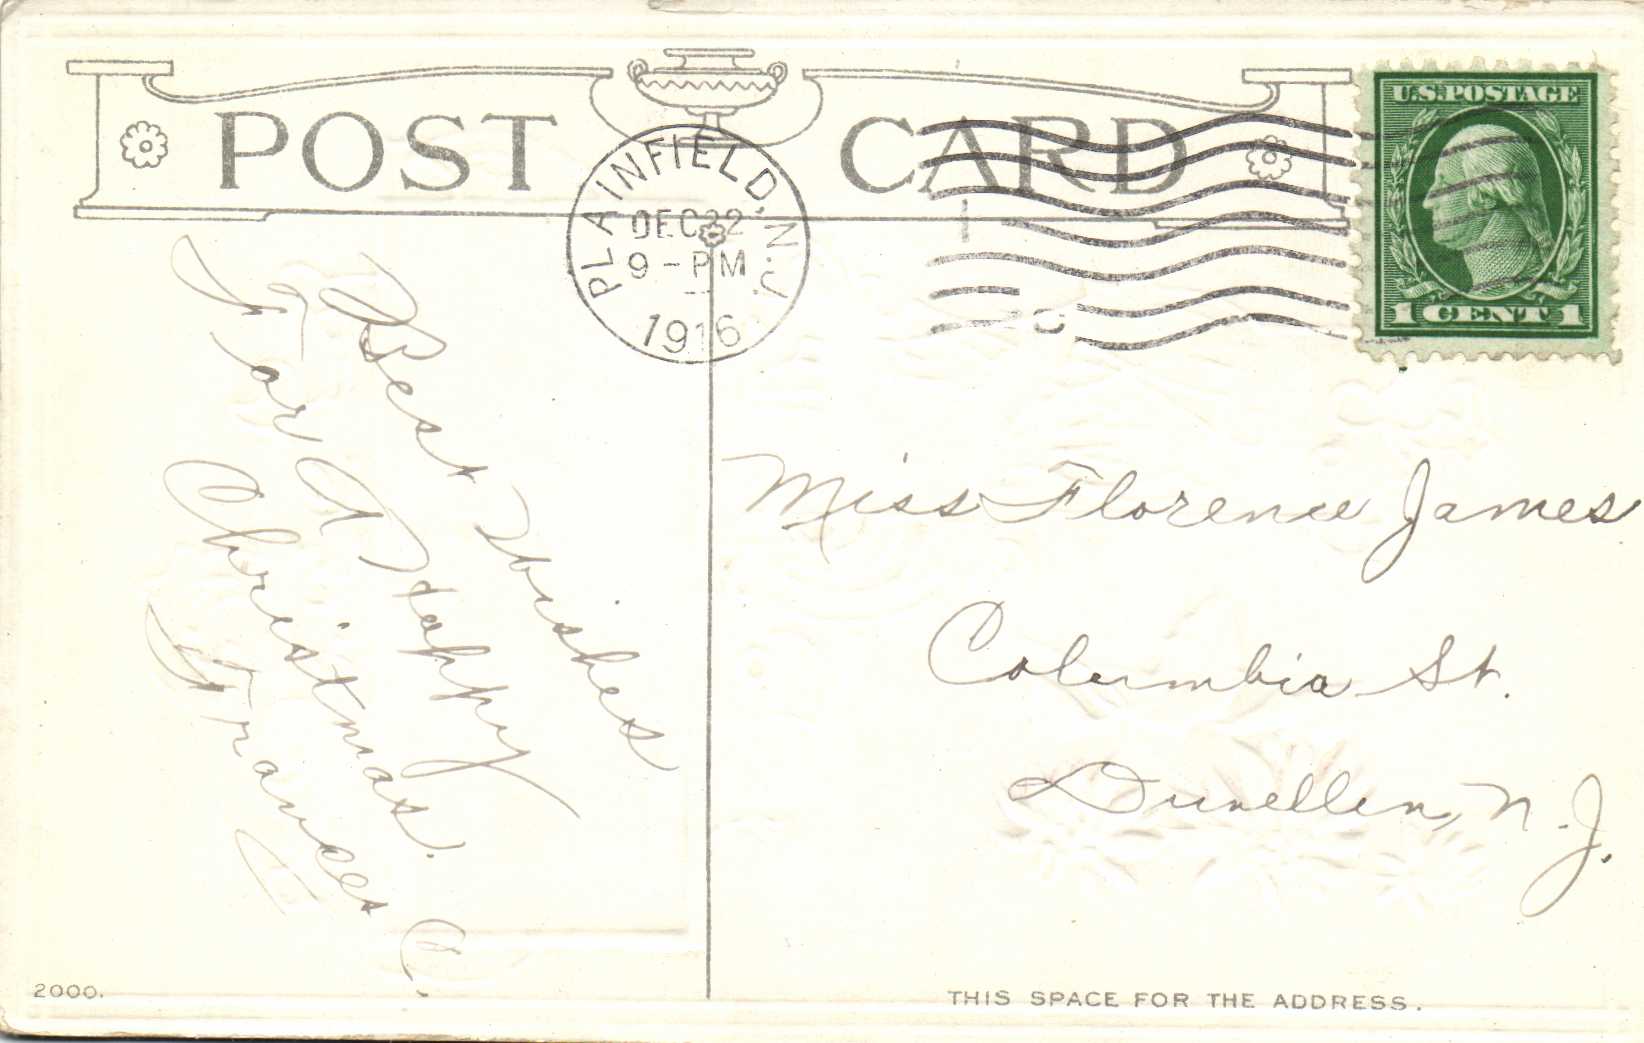 POST CARD
PLAINFIELD, N.J.
DEC 22
9-PM
1916
U.S. POSTAGE
1 CENT 1
Best Wishes
For A Happy
Christmas.
Frances C.
Miss Florence James
Columbia St.
Dunellen, N.J.
2000.
THIS SPACE FOR THE ADDRESS.